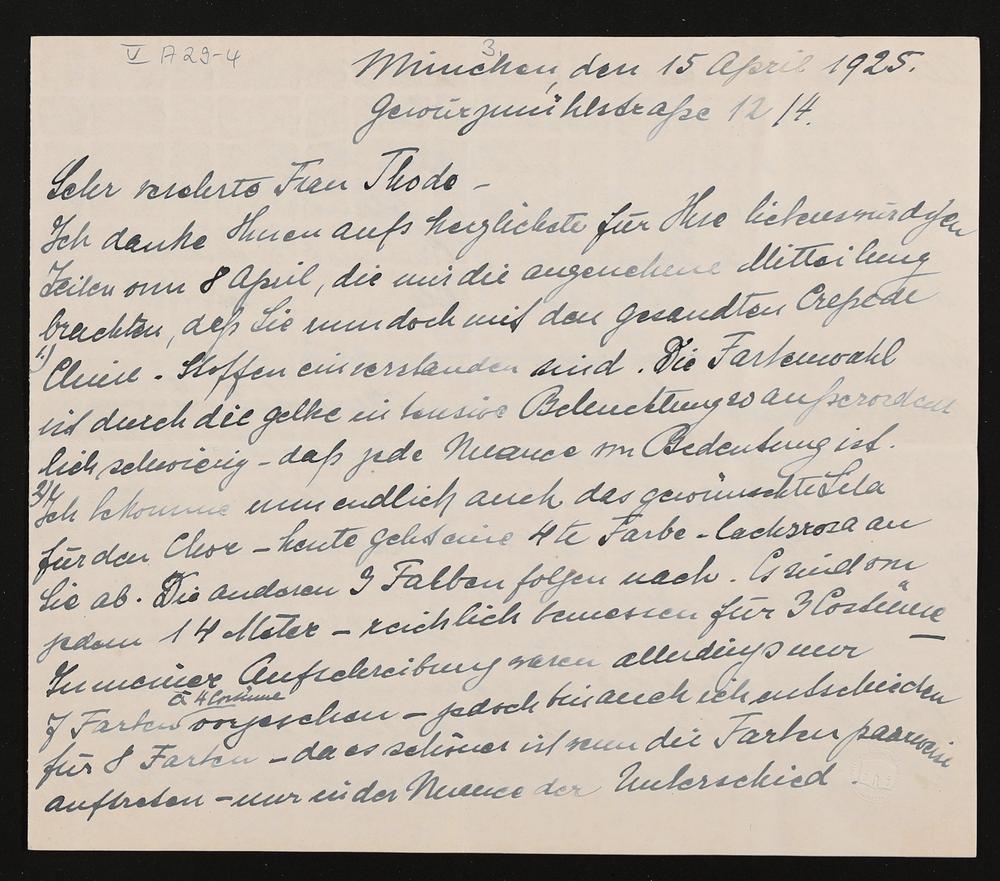 V A 29-4
3.
München, den 15 April 1925.
Gewürzmühlstraße 12/4.
Sehr verehrte Frau Thode –
Ich danke Ihnen aufs herzlichste für Ihre liebenswürdigen
Zeilen vom 8 April, die mir die angenehme Mitteilung
brachten, daß Sie nun doch mit den gesandten Crepe de
1) Chine - Stoffen einverstanden sind. Die Farbenwahl
ist durch die gelbe intensive Beleuchtung so außerordent
lich schwierig – daß jede Nuance von Bedeutung ist.
2) Ich bekomme nun endlich auch das gewünschte Lila
für den Chor – heute geht eine 4te Farbe - lachsrosa an
Sie ab. Die anderen Farben folgen nach. Es sind von
jedem 14 Meter – reichlich bemessen für 3 Costüme –
In meiner Aufschreibung waren allerdings nur
à 4 Costüme
7 Farben vorgesehen – jedoch bin auch ich entschieden
für 8 Farben – da es schöner ist wenn die Farben paarweise
auftreten – nur in der Nuance der Unterschied